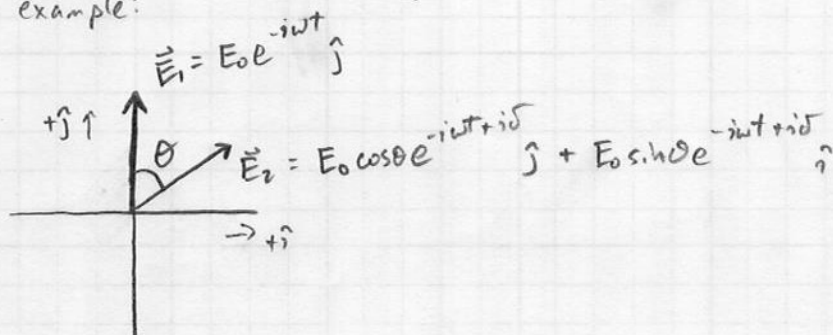 example:
E⃗₁ = E₀e^(-iωt) ĵ
+ĵ ↑
θ
E⃗₂ = E₀cosθe^(-iωt+iδ) ĵ + E₀sinθe^(-iωt+iδ) î
→ +î